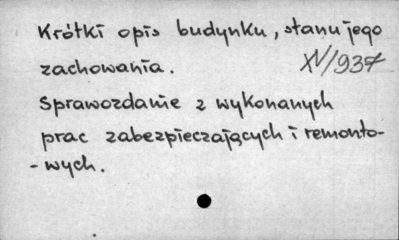 Krótki opis budynku, stanu jego
zachowania.
XV/937
Sprawozdanie z wykonanych
prac zabezpieczających i remonto-
- wych.